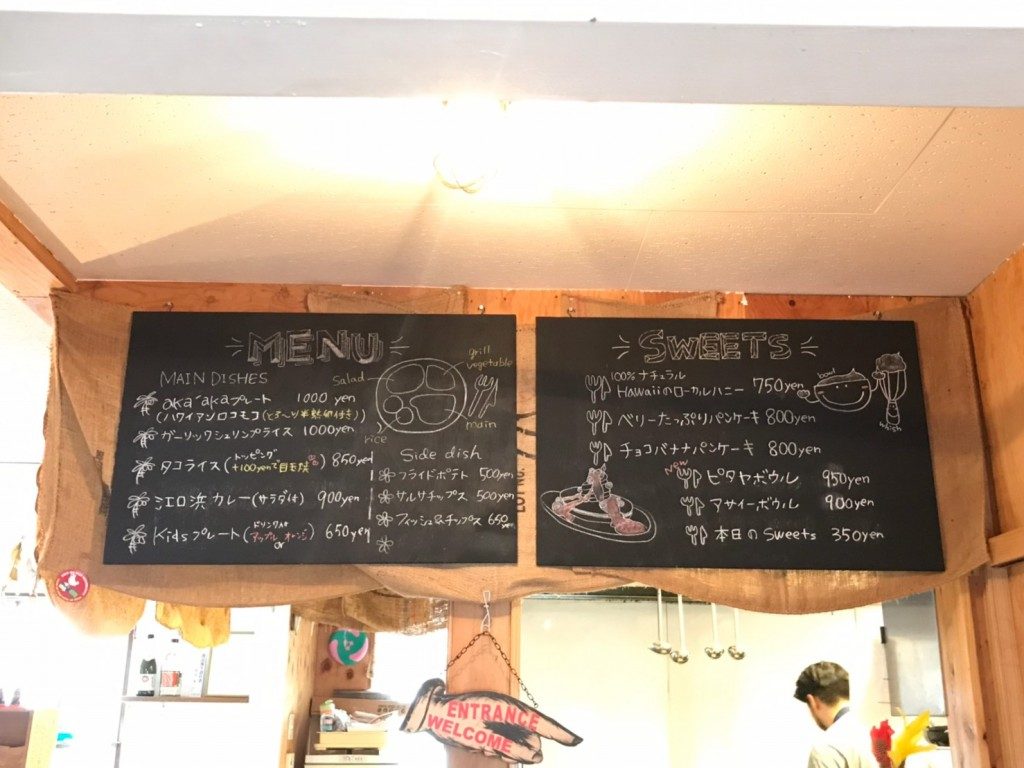 MENU
MAIN DISHES
aka akaプレート 1000 yen
(ハワイアンロコモコ(とろ〜り半熟卵付き))
ガーリックシュリンプライス 1000yen
タコライス(トッピング +100yenで目玉焼) 850yen
江口浜カレー(サラダ付) 900yen
Kidsプレート(ドリンク付 アップル or オレンジ) 650yen
salad
grill
vegetable
main
rice
Side dish
フライドポテト 500yen
サルサチップス 500yen
フィッシュ&チップス 650yen
SWEETS
100%ナチュラル
Hawaiiのローカルハニー 750yen
ベリーたっぷりパンケーキ 800yen
チョコバナナパンケーキ 800yen
New
ピタヤボウル 950yen
アサイーボウル 900yen
本日のSweets 350yen
bowl
whish
LOT NO.
ENTRANCE
WELCOME